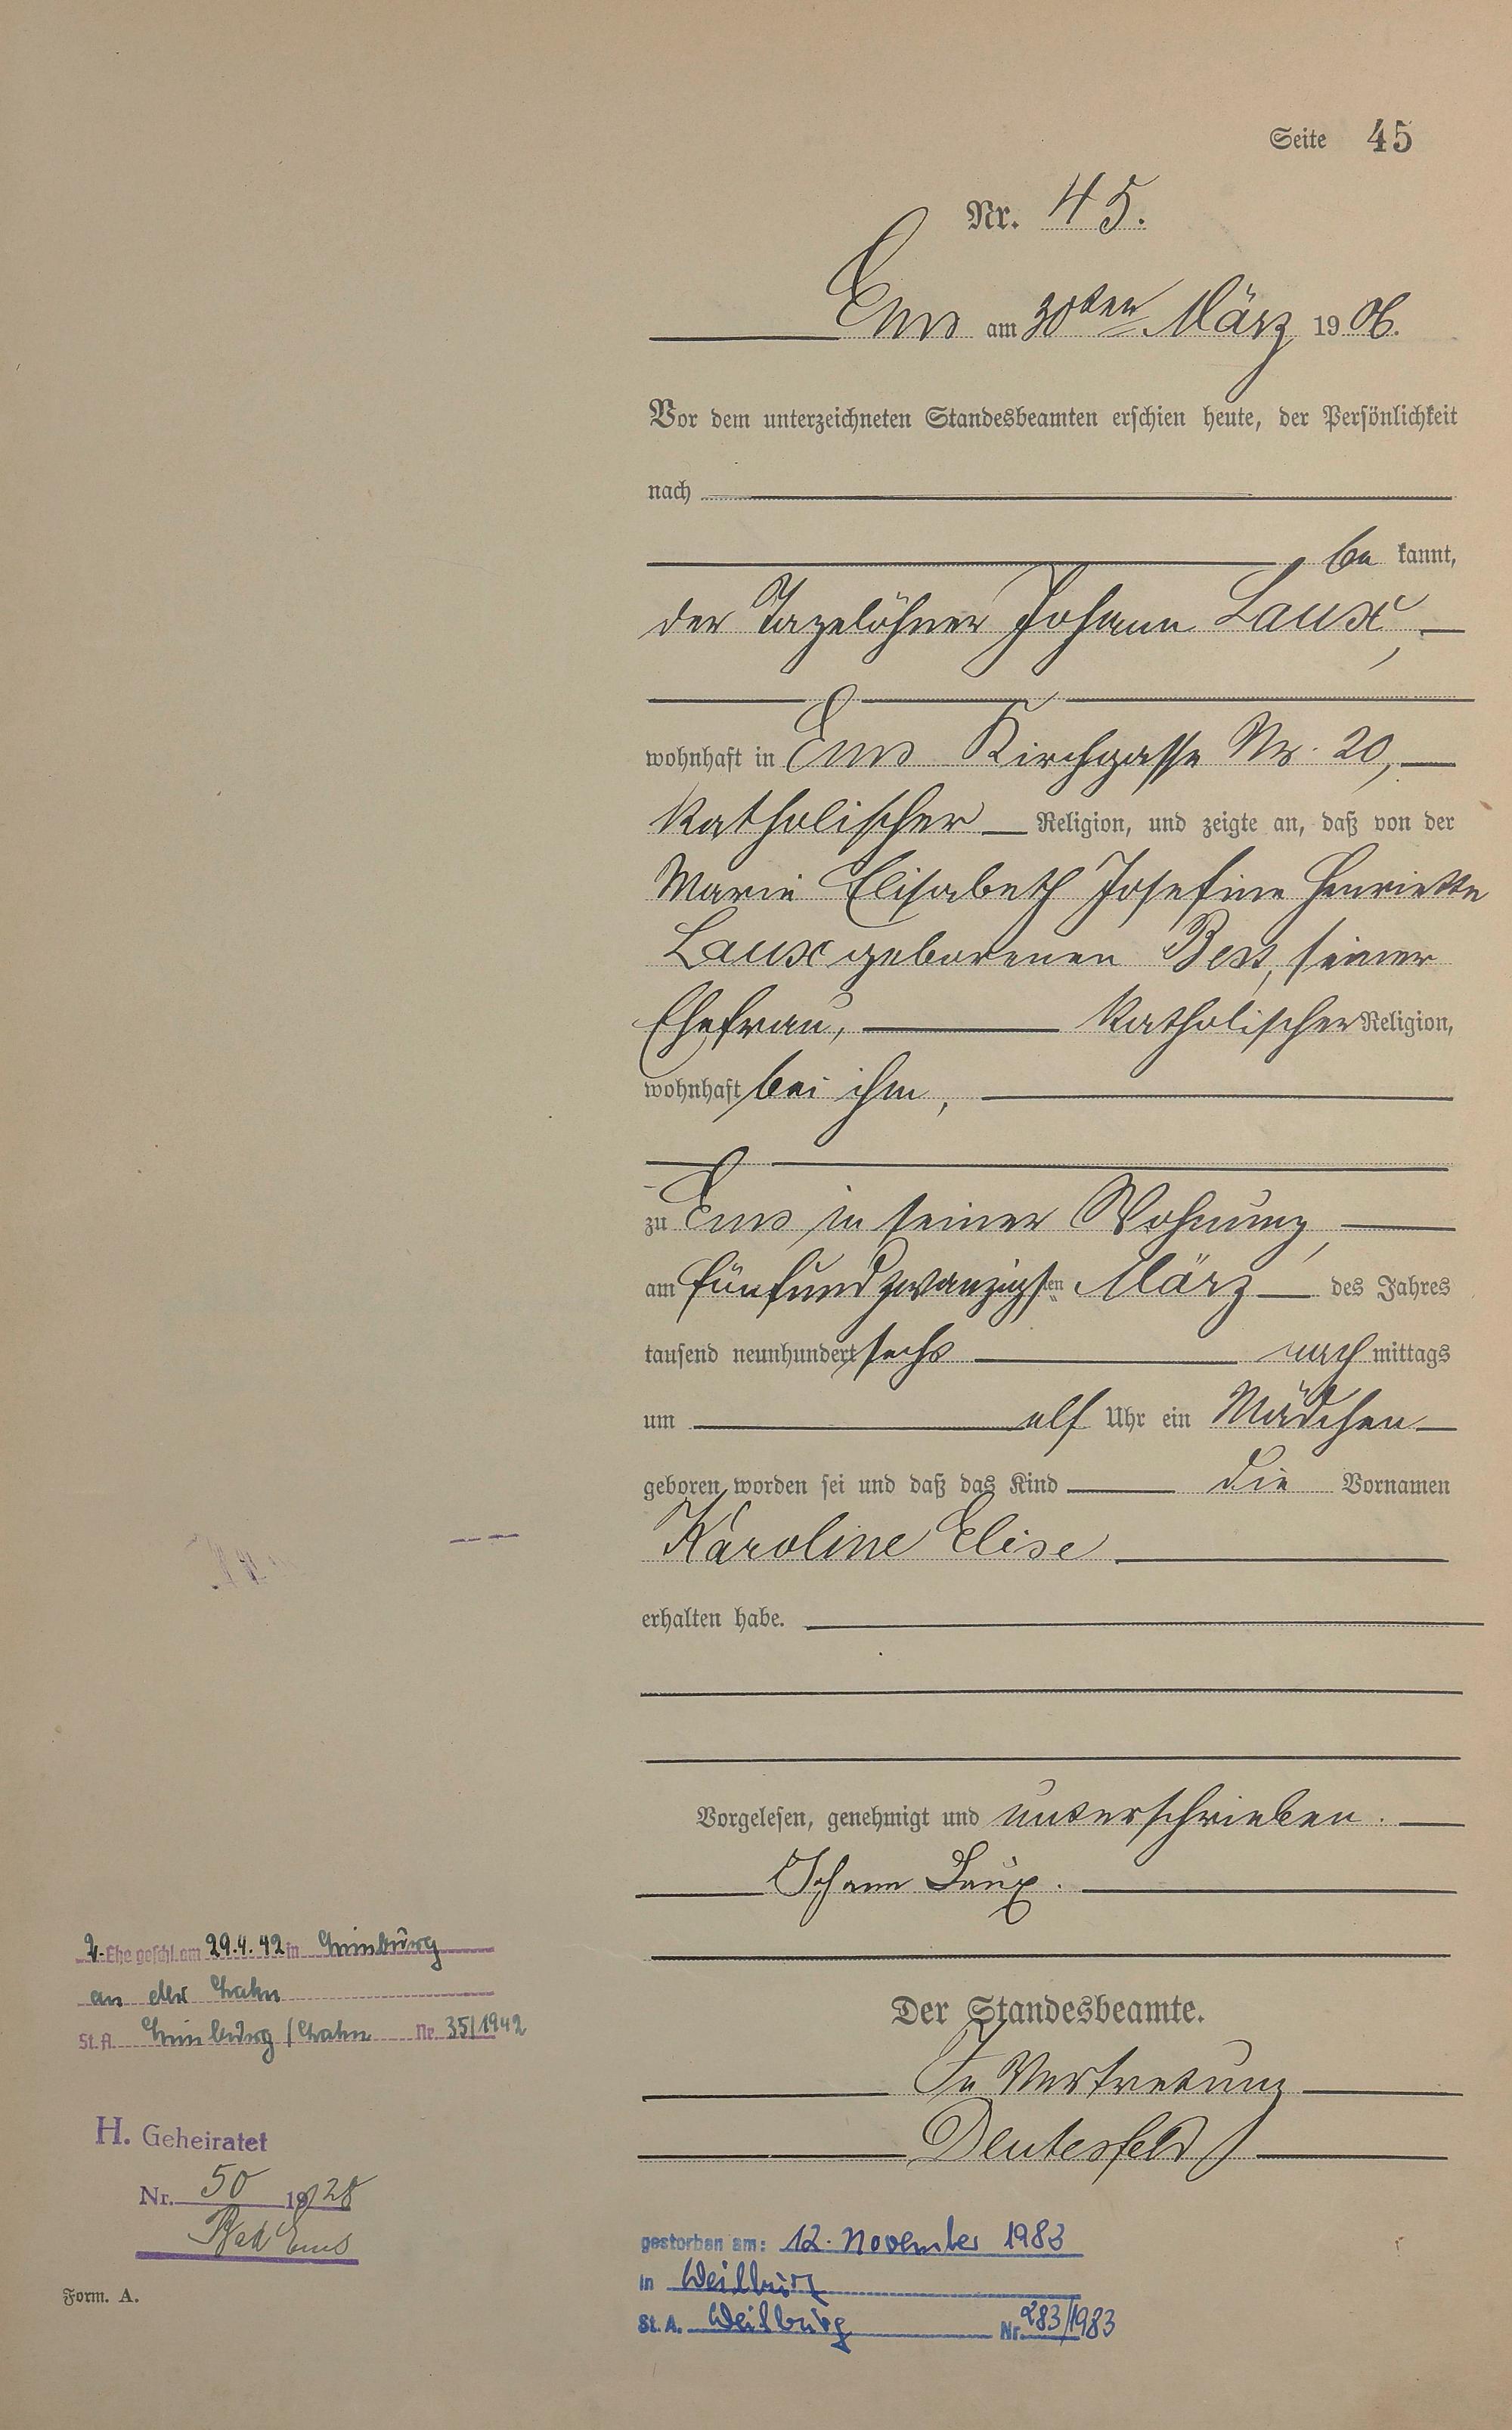 Seite 45
Nr. 45.
Ems am 30ten März 1906.
Vor dem unterzeichneten Standesbeamten erschien heute, der Persönlichkeit
nach
be kannt,
der Tagelöhner Johann Laux,
wohnhaft in Ems Kirchgasse Nr. 20,
katholischer Religion, und zeigte an, daß von der
Marie Elisabeth Josefine Henriette
Laux geborenen Best, seiner
Ehefrau, katholischer Religion,
wohnhaft bei ihm,
zu Ems in seiner Wohnung,
am fünfundzwanzigsten März des Jahres
tausend neunhundert sechs nach mittags
um elf Uhr ein Mädchen
geboren worden sei und daß das Kind die Vornamen
Karoline Elise
erhalten habe.
Vorgelesen, genehmigt und unterschrieben.
Johann Laux.
Der Standesbeamte.
In Vertretung
Deutesfeld
2. Ehe geschl. am 29.4.42 in Limburg
an der Lahn
St. A. Limburg/Lahn Nr. 35/1942
H. Geheiratet
Nr. 50 1928
Bad Ems
Form. A.
gestorben am: 12. November 1983
in Weilburg
St. A. Weilburg Nr. 283/1983